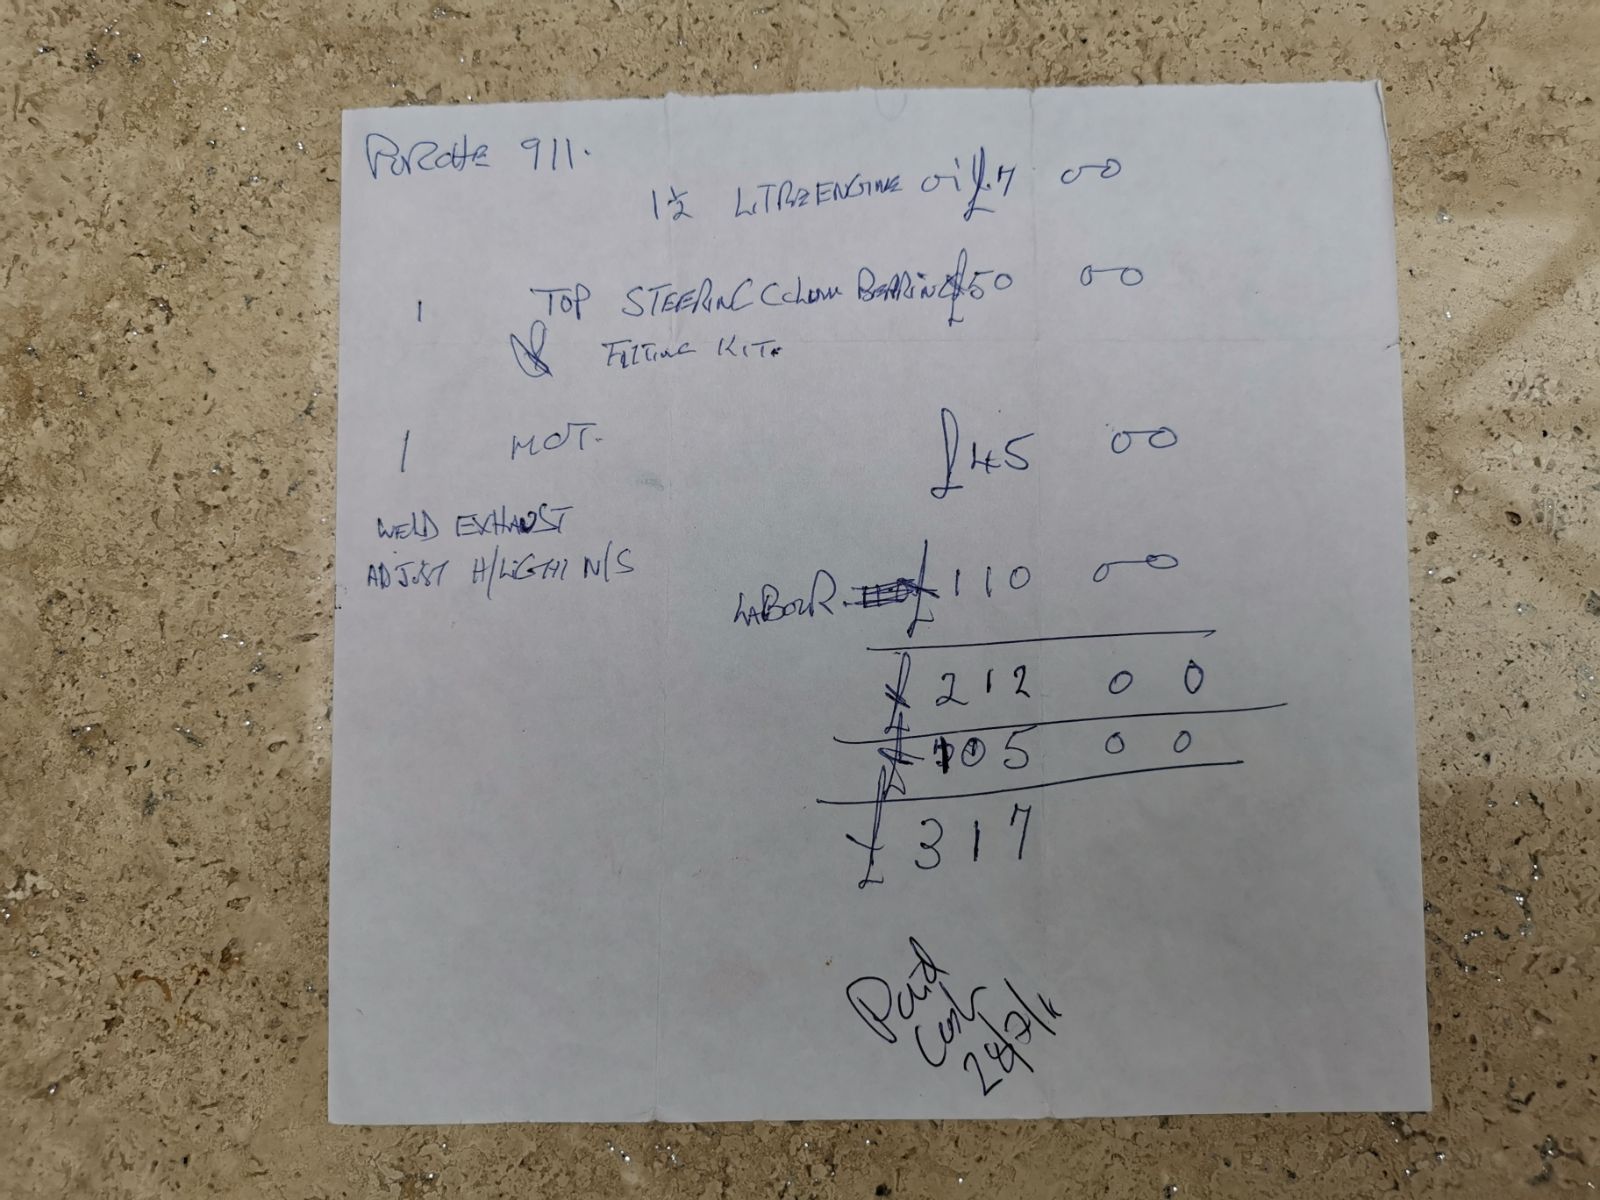 PORCHE 911.
1½ LITRE ENGINE OIL £7 00
1 TOP STEERING COLUMN BEARING £50 00
& FITTING KIT.
1 MOT. £45 00
WELD EXHAUST
ADJUST H/LIGHT N/S
LABOUR. £110 00
£212 00
105 00
£317
Paid
Cash